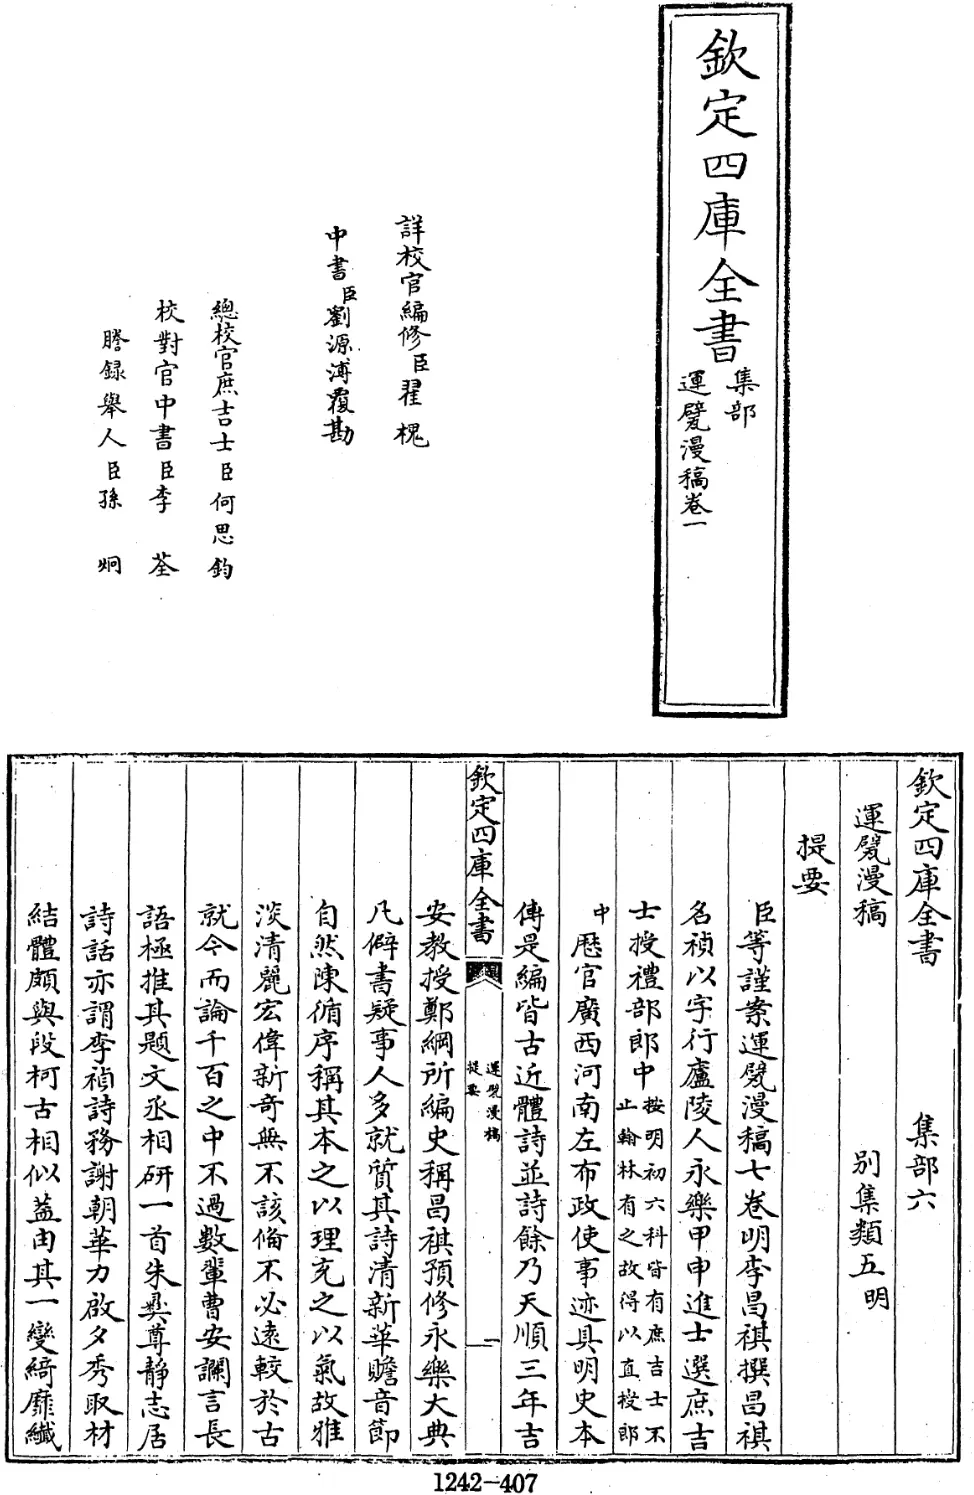 欽定四庫全書
集部
運甓漫稿卷一
詳校官編修臣翟槐
中書臣劉源溥覆勘
總校官庶吉士臣何思鈞
校對官中書臣李荃
謄録舉人臣孫炯
欽定四庫全書 集部六
運甓漫稿 别集類五明
提要
臣等謹案運甓漫稿七卷明李昌祺撰昌祺
名禎以字行廬陵人永樂甲申進士選庶吉
士授禮部郎中按明初六科皆有庶吉士不
止翰林有之故得以直授郎
中歷官廣西河南左布政使事迹具明史本
傳是編皆古近體詩並詩餘乃天順三年吉
欽定四庫全書
運甓漫稿
提要
一
安教授鄭綱所編史稱昌祺預修永樂大典
凡僻書疑事人多就質其詩清新華贍音節
自然陳循序稱其本之以理充之以氣故雅
淡清麗宏偉新奇無不該備不必遠較於古
就今而論千百之中不過數輩曹安讕言長
語極推其題文丞相研一首朱彝尊靜志居
詩話亦謂李禎詩務謝朝華力啟夕秀取材
結體頗與段柯古相似蓋由其一變綺靡纖
1242-407